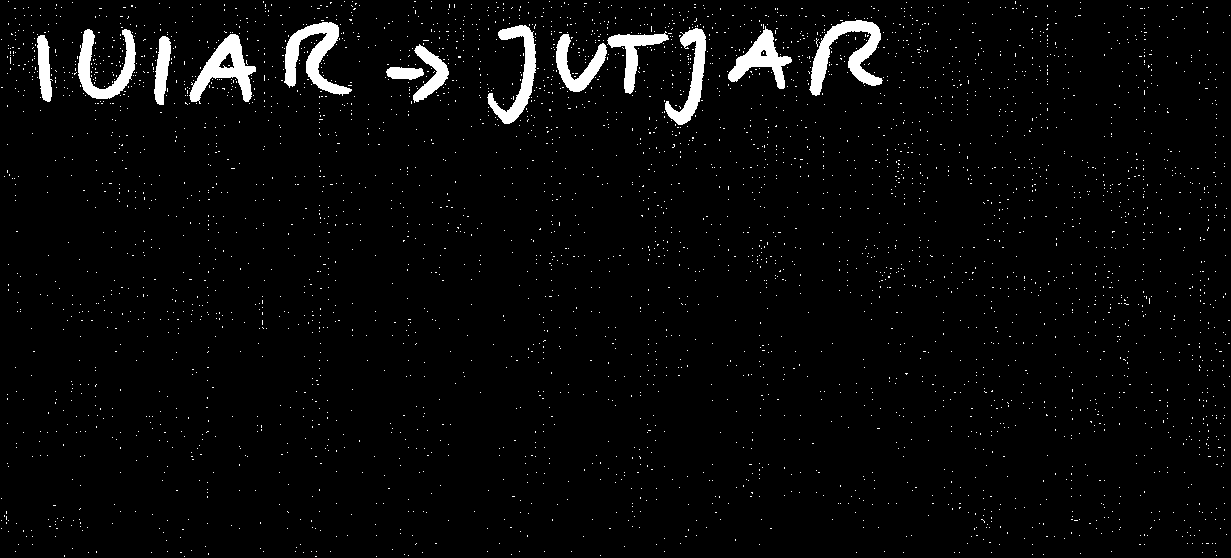 IUIAR → JUTJAR